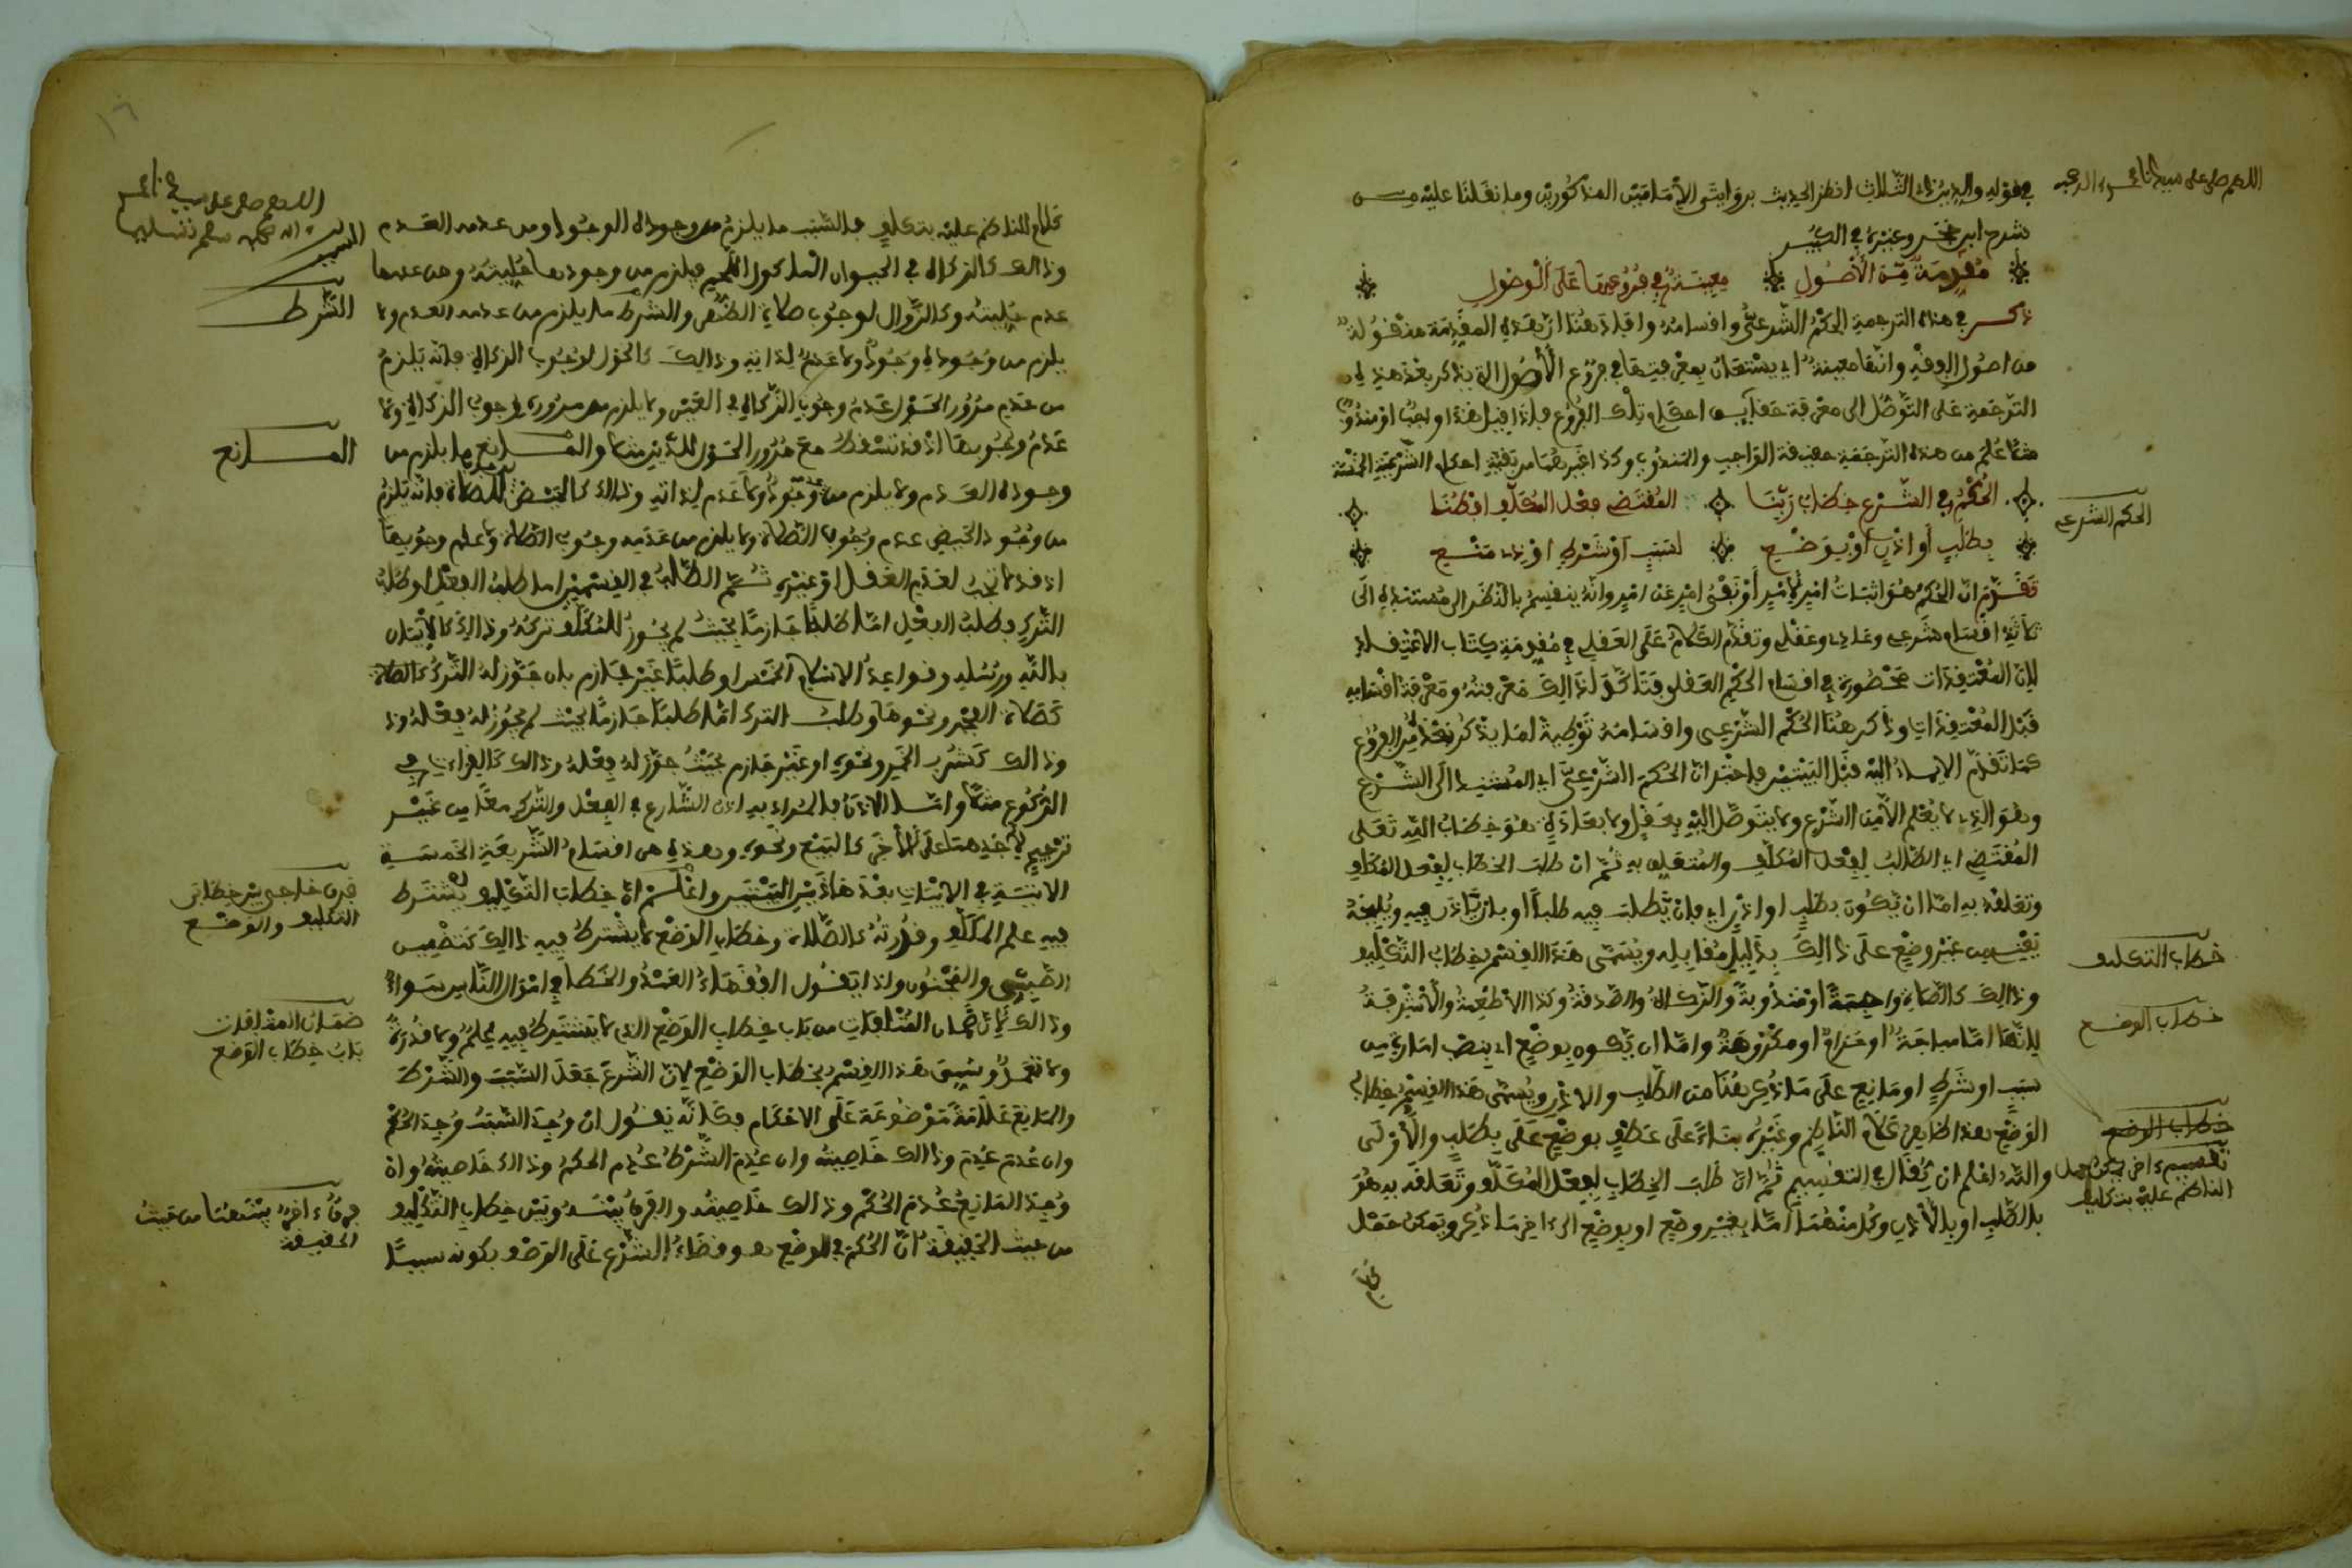 اللهم صل على سيدنا محمد وءاله وصحبه
في قوله والدين ذي الثلاث انظر الحديث بروايتي الإمامين المذكورين وما نقلنا عليه من
شرح ابن حجر وغيره في الكبير
مقدمة من الأصول معينة في فروعها على الوصول
ذكر في هذه الترجمة الحكم الشرعي وأقسامه وأفاد هنا أن هذه المقدمة منقولة
من أصول الفقه وأنها معينة أي يستعان بمعرفتها في فروع الأصول التي يذكر بعد هذه
الترجمة على التوصل إلى معرفة حقائق أحكام تلك الفروع فإذا قيل هذا واجب أو مندوب
مثلا علم من هذه الترجمة معرفة الواجب والمندوب وكذا غيرهما من بقية أحكام الشريعة الخمسة
الحكم الشرعي
الحكم في الشرع خطاب ربنا المقتضي فعل المكلف افطنا
بطلب أو إذن أو بوضع لسبب أو شرط أو ذي منع
تقدم أن الحكم هو إثبات أمر لأمر أو نفي أمر عن أمر وأنه ينقسم بالنظر إلى مستنده إلى
ثلاثة أقسام شرعي وعادي وعقلي وتقدم الكلام على العقلي في مقدمة كتاب الاعتقاد
لأن المعتقدات محصورة في أقسام الحكم العقلي فتأكد لذلك معرفته ومعرفة أقسامه
قبل المعتقدات وذكر هنا الحكم الشرعي وأقسامه توطية لما يذكر بعد من الفروع
كما تقدم الإيماء إليه قبل البيتين فأخبر أن الحكم الشرعي أي المستند إلى الشرع
وهو الذي لا يعلم إلا من الشرع ولا يتوصل إليه بعقل ولا بعادة هو خطاب الله تعلى
المقتضي أي الطالب لفعل المكلف والمتعلق به ثم إن طلب الخطاب لفعل المكلف
وتعلقه به إما أن يكون بطلب أو إذن أي بأن يطلب فيه طلبا أو بأن يأذن فيه
خطاب التكليف
من غير وضع على ذلك بدليل مقابله ويسمى هذا القسم بخطاب التكليف
وذلك كالصلاة واجبة أو مندوبة والزكاة والصدقة وكذا الأطعمة والأشربة
خطاب الوضع
لأنها إما مباحة أو حرام أو مكروهة وإما أن يكون بوضع أي بنصب أمارة من
سبب أو شرط أو مانع على ما ذكر هنا من الطلب والإذن ويسمى هذا القسم بخطاب
خطاب الوضع
الوضع هذا ظاهر كلام الناظم وغيره بناء على عطف بوضع على بطلب والأولى
تقسيم ءاخر يمكن حمل
الناظم عليه بتكلف
والله أعلم أن يقال في التقسيم ثم إن طلب الخطاب لفعل المكلف وتعلقه به هو
بالطلب أو بالإذن وكل منهما إما بغير وضع أو بوضع إلى ءاخر ما ذكر ويمكن حمل
كلام
١٦
اللهم صل على سيدنا محمد
وءاله وصحبه وسلم تسليما
السبب
كلام الناظم عليه بتكلف فالسبب ما يلزم من وجوده الوجود ومن عدمه العدم
وذلك كالزكاة في الحيوان المأكول اللحم فيلزم من وجودها حليته ومن عدمها
الشرط
عدم حليته وكالزوال لوجوب صلاة الظهر والشرط ما يلزم من عدمه العدم ولا
يلزم من وجوده وجود ولا عدم لذاته وذلك كالحول لوجوب الزكاة فإنه يلزم
من عدم مرور الحول عدم وجوب الزكاة في العين ولا يلزم من مروره وجوب الزكاة ولا
المانع
عدم وجوبها إذ قد تسقط مع مرور الحول للدين مثلا والمانع ما يلزم من
وجوده العدم ولا يلزم من عدمه وجود ولا عدم لذاته وذلك كالحيض للصلاة فإنه يلزم
من وجود الحيض عدم وجوب الصلاة ولا يلزم من عدمه وجوب الصلاة ولا عدم وجوبها
إذ قد لا تجب لعدم العقل أو غيره ثم الطلب في القسمين إما طلب الفعل أو طلب
الترك وطلب الفعل إما طلبا جازما بحيث لم يجوز للمكلف تركه وذلك كالإيمان
بالله ورسله وقواعد الإسلام الخمس أو طلبا غير جازم بأن جوز له الترك كالصلاة
كصلاة الفجر ونحوها وطلب الترك إما طلبا جازما بحيث لم يجوز له فعله وذ
وذلك كشرب الخمر ونحوه أو غير جازم بحيث جوز له فعله وذلك كالقراءة في
الركوع مثلا وأما الإذن فالمراد به إذن الشارع في الفعل والترك معا من غير
ترجيح لأحدهما على الآخر كالبيع ونحوه وهذه هي أقسام الشريعة الخمسة
فرق خارجي بين خطابي
التكليف والوضع
الآتية في الأبيات بعد هذين البيتين واعلم أن خطاب التكليف يشترط
فيه علم المكلف وقدرته كالصلاة وخطاب الوضع لا يشترط فيه ذلك كتضمين
الصبي والمجنون ولذا يقول الفقهاء العمد والخطأ في أموال الناس سواء
ضمان المتلفات
باب خطاب الوضع
وذلك لأن ضمان المتلفات من باب خطاب الوضع الذي لا يشترط فيه علم ولا قدرة
ولا تعمد وسمي هذا القسم بخطاب الوضع لأن الشرع جعل السبب والشرط
والمانع علامة موضوعة على الأحكام فكأنه يقول إن وجد السبب وجد الحكم
وإن عدم عدم وذلك خاصيته وإن عدم الشرط عدم الحكم وذلك خاصيته وإن
فرق ءاخر بينهما من حيث
الحقيقة
وجد المانع عدم الحكم وذلك خاصيته والفرق بينه وبين خطاب التكليف
من حيث الحقيقة أن الحكم في الوضع هو قضاء الشرع على الوصف بكونه سببا